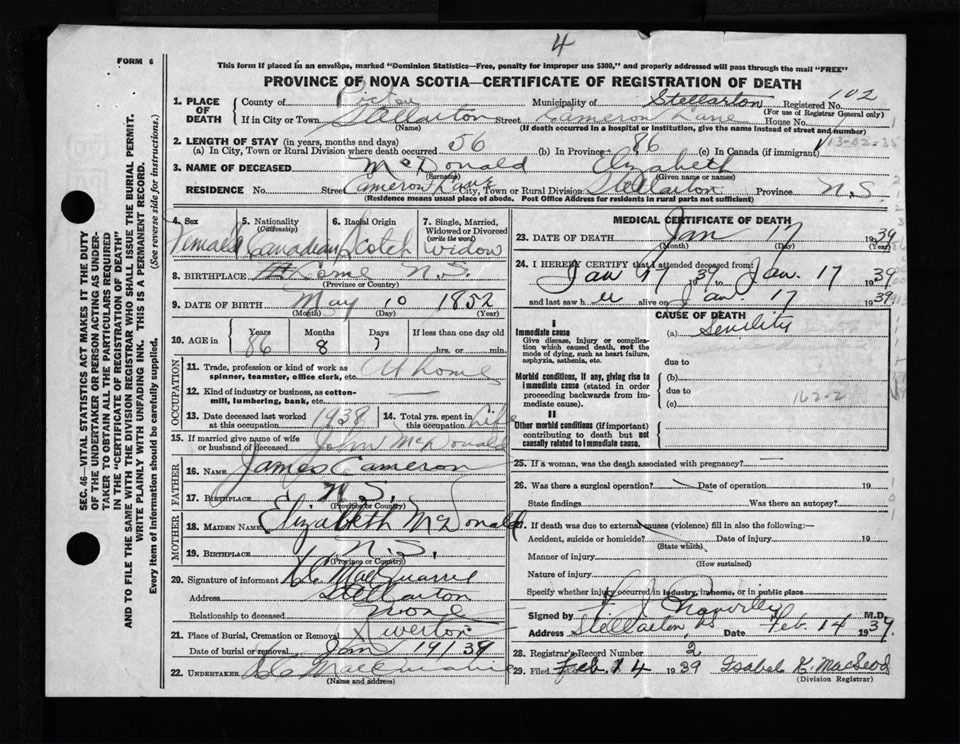 4
FORM 6
This form if placed in an envelope, marked "Dominion Statistics—Free, penalty for improper use $300," and properly addressed will pass through the mail "FREE"
PROVINCE OF NOVA SCOTIA—CERTIFICATE OF REGISTRATION OF DEATH
102
1. PLACE OF DEATH
County of Pictou Municipality of Stellarton Registered No.
(For use of Registrar General only)
If in City or Town Stellarton Street Cameron Lane House No.
(Name) (If death occurred in a hospital or institution, give the name instead of street and number)
2. LENGTH OF STAY (in years, months and days)
(a) In City, Town or Rural Division where death occurred 56 (b) In Province 86 (c) In Canada (if immigrant)
3. NAME OF DECEASED McDonald Elizabeth
(Surname) (Given name or names)
RESIDENCE No. Street Cameron Lane City, Town or Rural Division Stellarton Province N.S
(Residence means usual place of abode. Post Office Address for residents in rural parts not sufficient)
4. Sex Female
5. Nationality (Citizenship) Canadian
6. Racial Origin Scotch
7. Single, Married, Widowed or Divorced (write the word) Widow
8. BIRTHPLACE Lorne N.S.
(Province or Country)
9. DATE OF BIRTH May 10 1852
(Month) (Day) (Year)
10. AGE in
Years 86
Months 8
Days 7
If less than one day old
hrs. or min.
OCCUPATION
11. Trade, profession or kind of work as spinner, teamster, office clerk, etc. At home
12. Kind of industry or business, as cotton-mill, lumbering, bank, etc. —
13. Date deceased last worked at this occupation 1938
14. Total yrs. spent in Life
15. If married give name of wife or husband of deceased John McDonald
FATHER
16. NAME James Cameron
17. BIRTHPLACE N.S.
(Province or Country)
MOTHER
18. MAIDEN NAME Elizabeth McDonald
19. BIRTHPLACE N.S.
(Province or Country)
20. Signature of informant MacQuarrie
Address Stellarton
Relationship to deceased None
21. Place of Burial, Cremation or Removal Riverton
Date of burial or removal Jan 19/39
22. UNDERTAKER
(Name and address)
MEDICAL CERTIFICATE OF DEATH
23. DATE OF DEATH Jan 17 1939
(Month) (Day) (Year)
24. I HEREBY CERTIFY that I attended deceased from:
Jan 17 1939 to Jan. 17 1939
and last saw h er alive on Jan. 17 1939
CAUSE OF DEATH
I
Immediate cause
Give disease, injury or complication which caused death, not the mode of dying, such as heart failure, asphyxia, asthenia, etc.
(a) Senility
due to
Morbid conditions, if any, giving rise to immediate cause (stated in order proceeding backwards from immediate cause).
(b)
due to
(c)
162-2
II
Other morbid conditions (if important) contributing to death but not causally related to immediate cause.
25. If a woman, was the death associated with pregnancy? —
26. Was there a surgical operation? Date of operation 19
State findings Was there an autopsy?
27. If death was due to external causes (violence) fill in also the following:—
Accident, suicide or homicide? Date of injury 19
(State which)
Manner of injury
(How sustained)
Nature of injury
Specify whether injury occurred in industry, in home, or in public place
Signed by M.D.
Address Stellarton NS Date Feb. 14 1939.
28. Registrar's Record Number 2
29. Filed Feb. 14 1939 Isabel K. MacLeod
(Division Registrar)
SEC. 46—VITAL STATISTICS ACT MAKES IT THE DUTY
OF THE UNDERTAKER OR PERSON ACTING AS UNDER-
TAKER TO OBTAIN ALL THE PARTICULARS REQUIRED
IN THE "CERTIFICATE OF REGISTRATION OF DEATH"
AND TO FILE THE SAME WITH THE DIVISION REGISTRAR WHO SHALL ISSUE THE BURIAL PERMIT.
WRITE PLAINLY WITH UNFADING INK. THIS IS A PERMANENT RECORD.
Every item of Information should be carefully supplied. (See reverse side for instructions.)